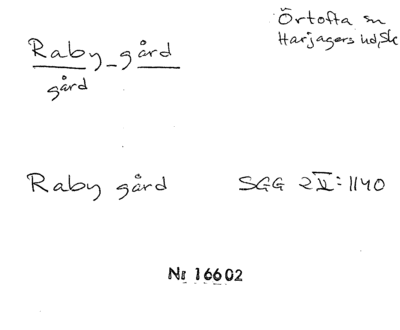 Örtofta sn
Harjagers hd, Sk
Raby-gård
gård
Raby gård
SGG 2V:1140
Nr 16602